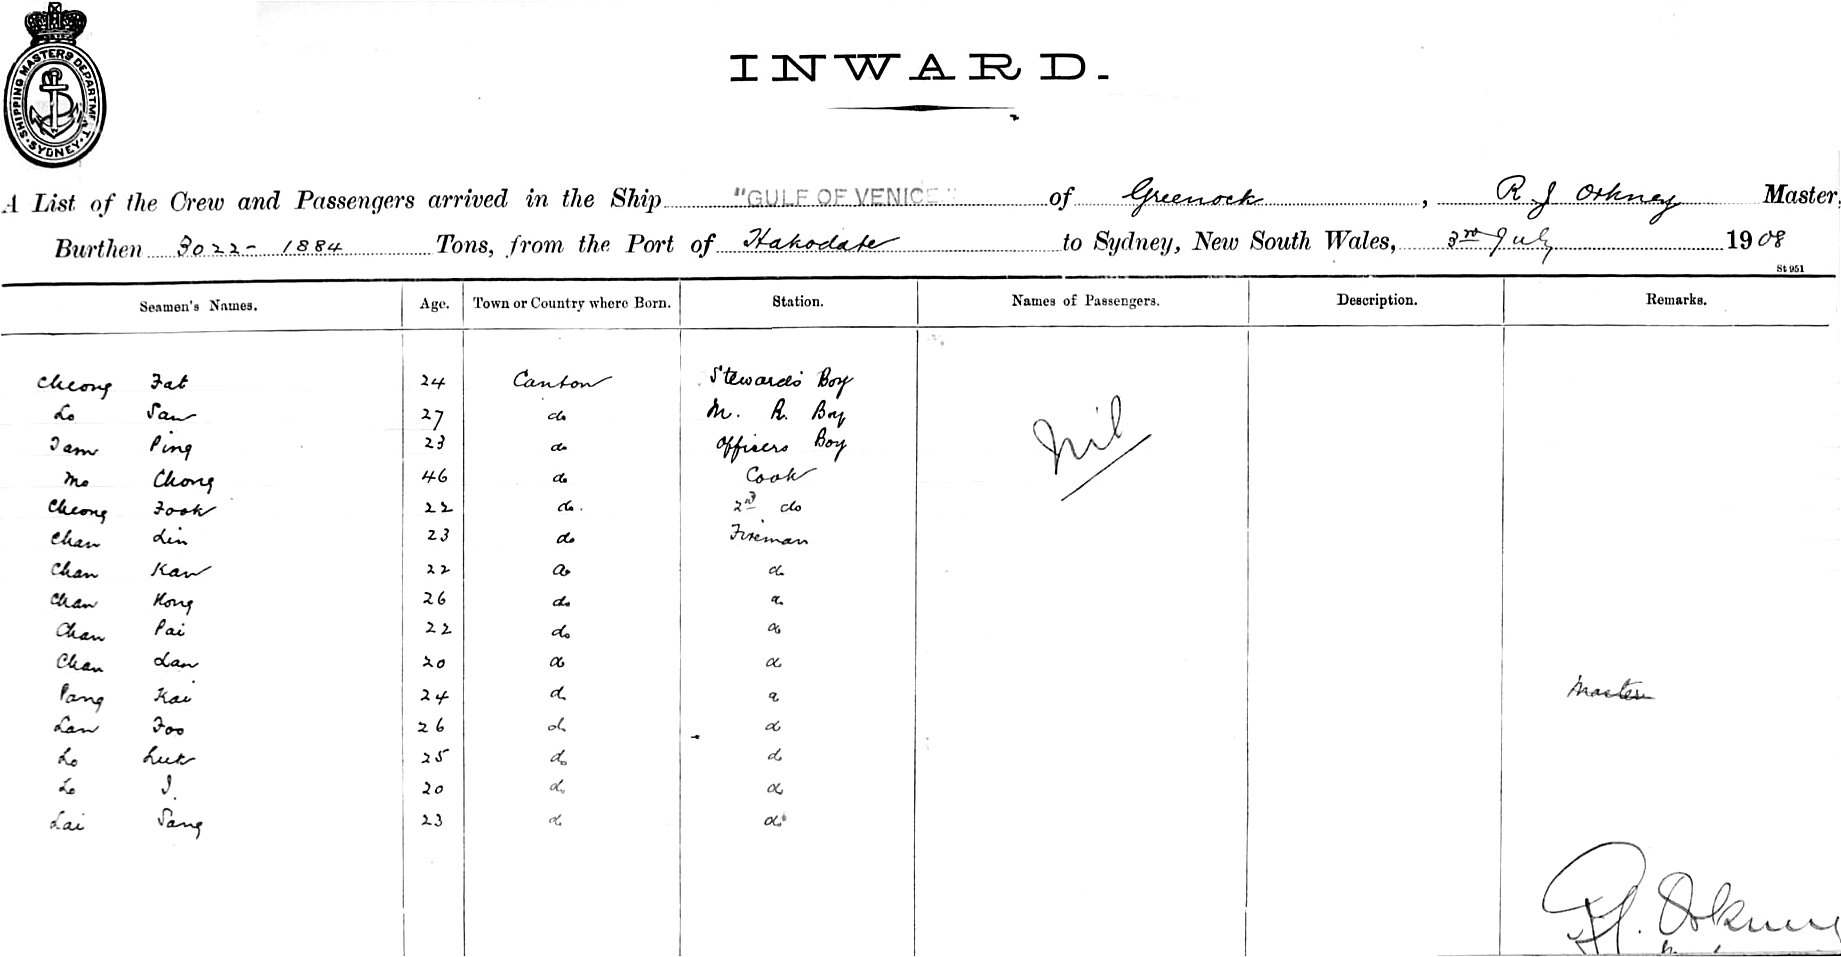 SHIPPING MASTERS DEPARTMENT
SYDNEY
INWARD.
A List of the Crew and Passengers arrived in the Ship "GULF OF VENICE" of Greenock, R J Orkney Master,
Burthen 3022 - 1884 Tons, from the Port of Hakodate to Sydney, New South Wales, 3rd July 1908
St 951
Seamen's Names. Age. Town or Country where Born. Station. Names of Passengers. Description. Remarks.
Cheong Fat 24 Canton Steward's Boy
Lo San 27 do M. R. Boy
Tam Ping 23 do Officers Boy
Nil
Mo Chong 46 do Cook
Cheong Fook 22 do. 2nd do
Chan Lin 23 do Fireman
Chan Kan 22 do do
Chan Hong 26 do do
Chan Pai 22 do do
Chan Lan 20 do do
Pang Kai 24 do do Master
Lan Foo 26 do do
Lo Luk 25 do do
Lo I. 20 do do
Lai Sang 23 do do
R J. Orkney